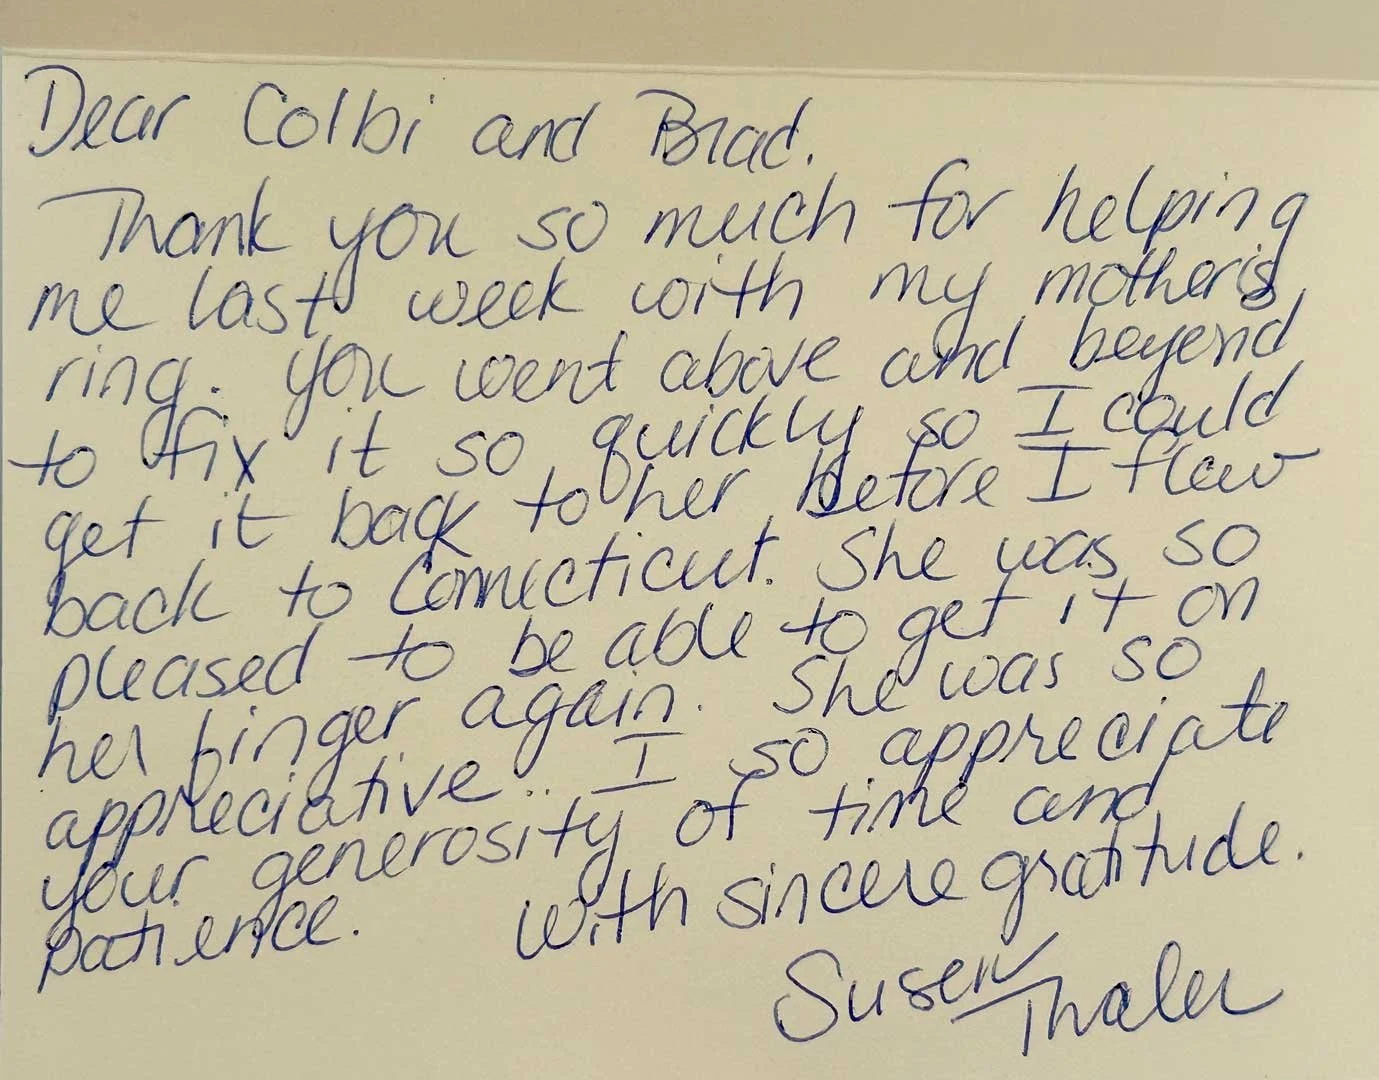 Dear Colbi and Brad.
Thank you so much for helping
me last week with my mother's
ring. You went above and beyond
to fix it so quickly so I could
get it back to her before I flew
back to Connecticut. She was so
pleased to be able to get it on
her finger again. She was so
appreciative.. I so appreciate
your generosity of time and
patience. With sincere gratitude.
Susen Thaler